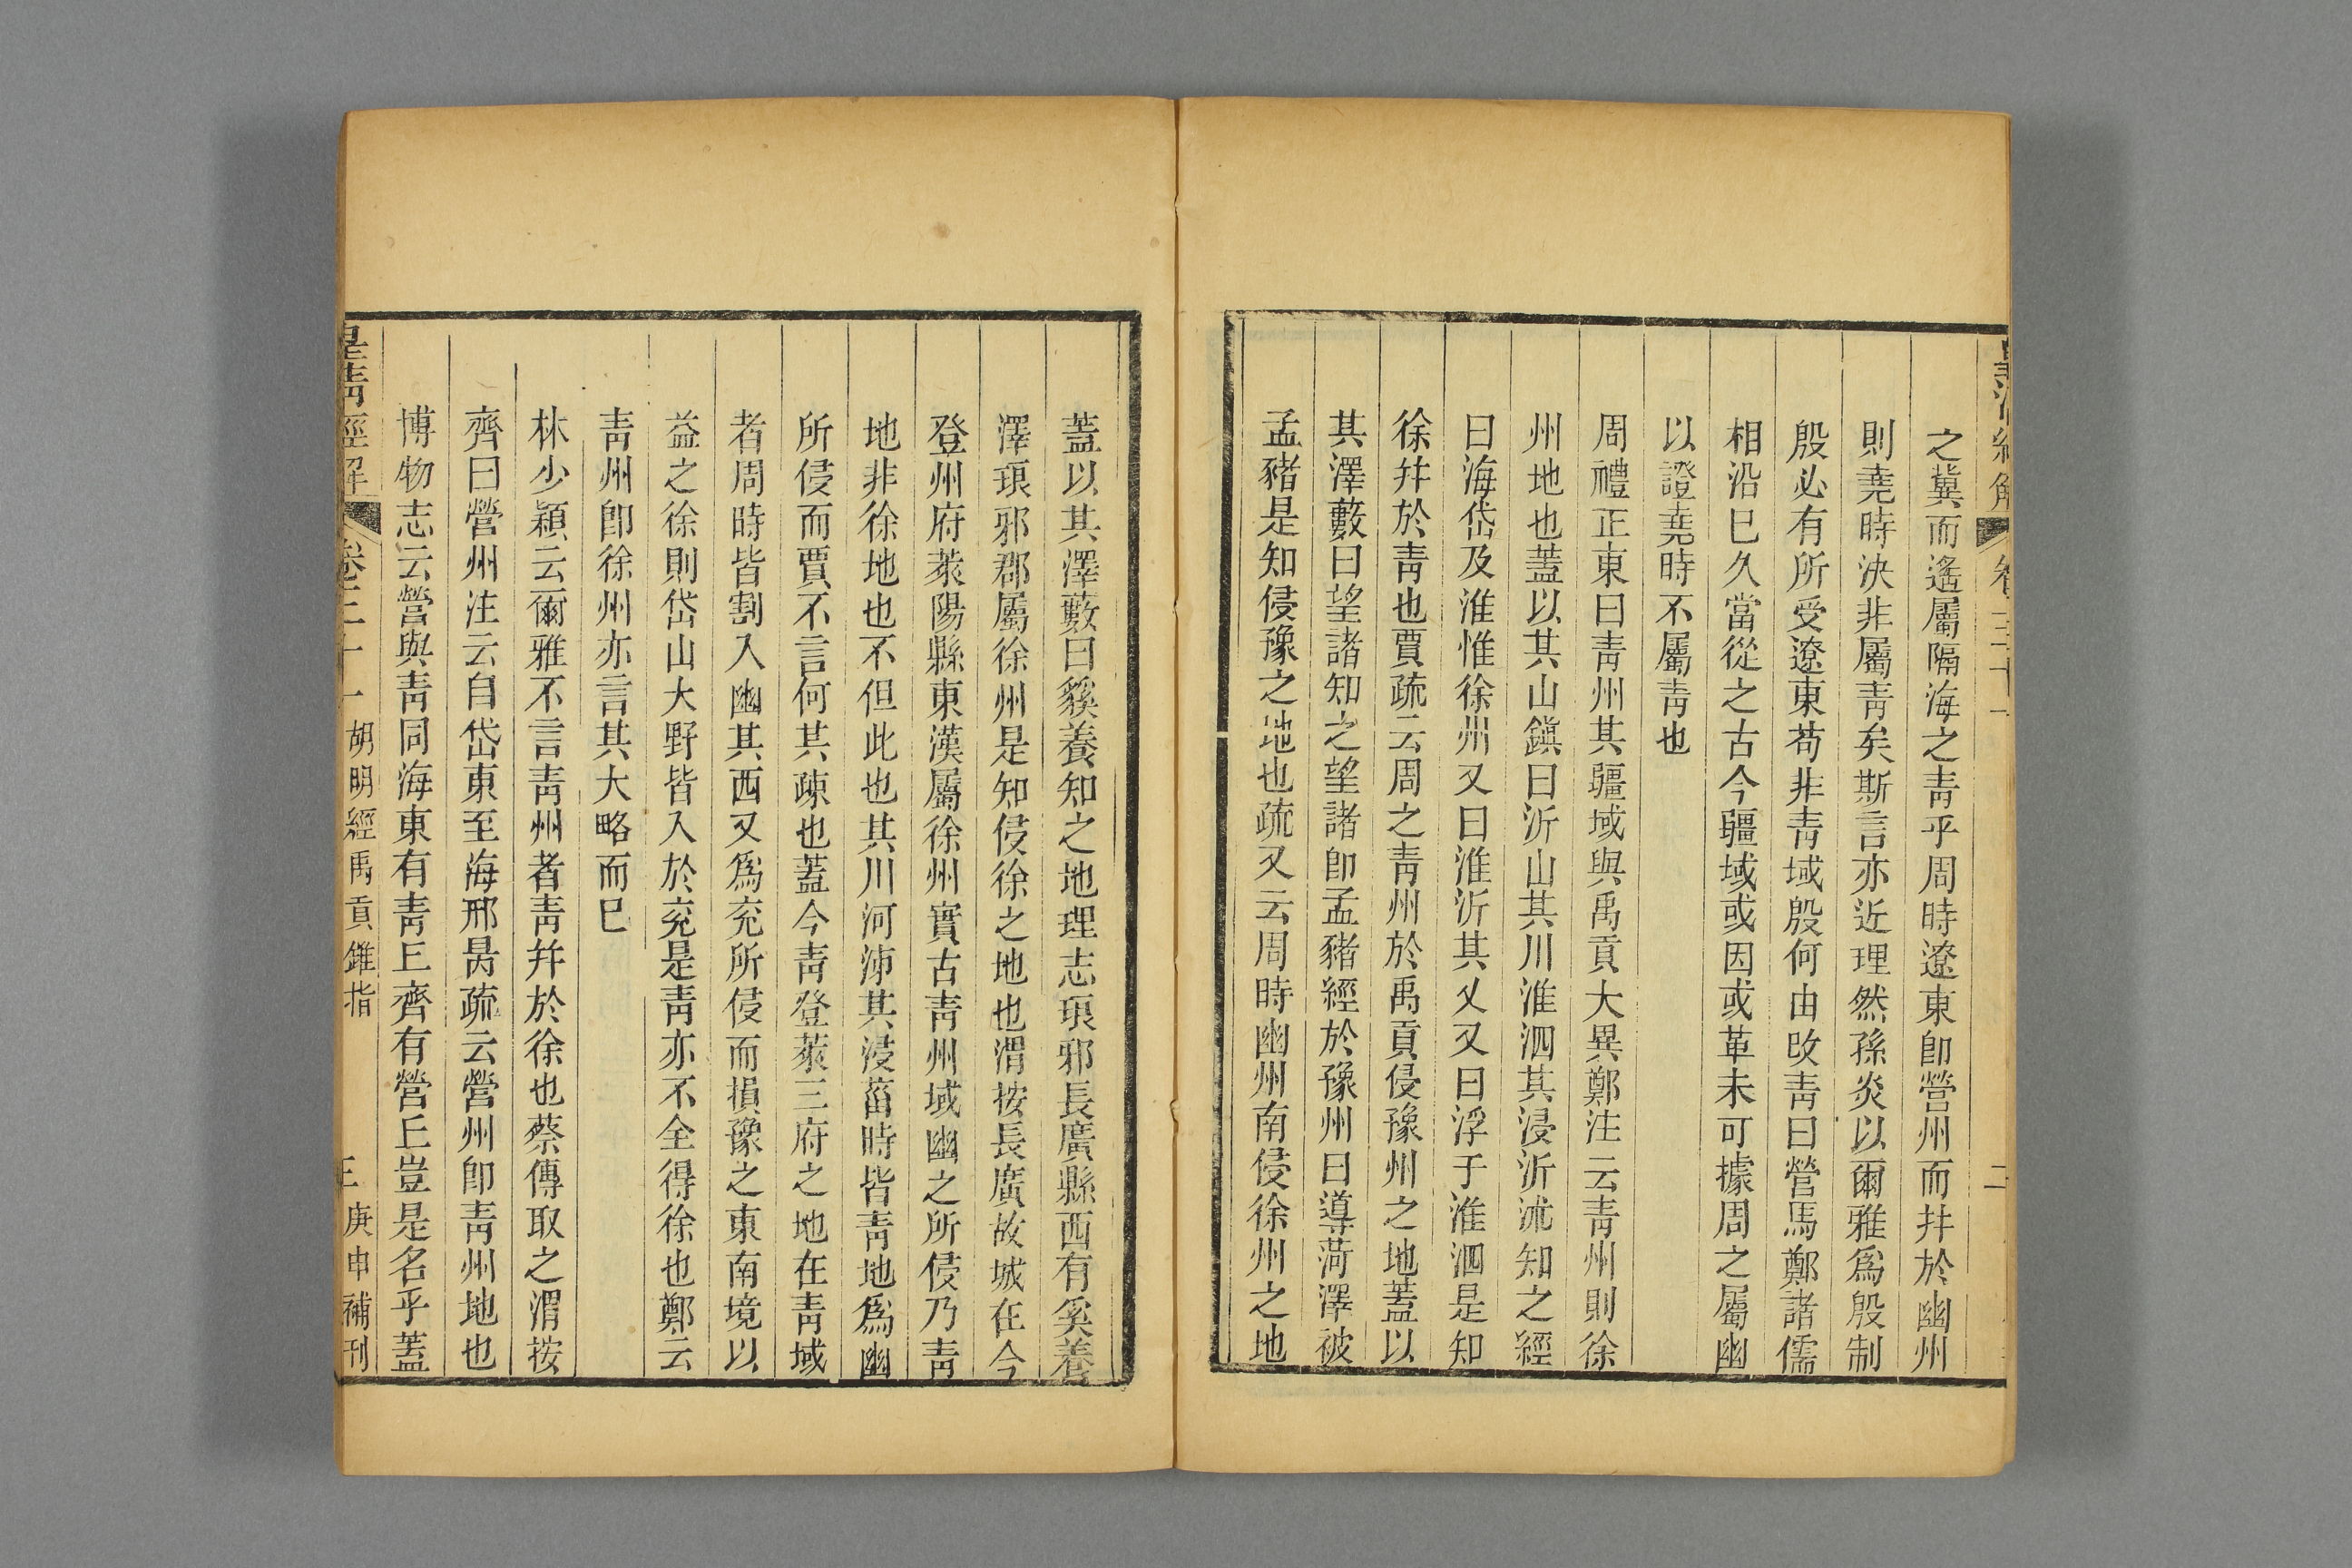 皇清經解 卷三十一 二
之冀而遙屬隔海之靑乎周時遼東卽營州而幷於幽州
則堯時決非屬靑矣斯言亦近理然孫炎以爾雅爲殷制
殷必有所受遼東苟非靑域殷何由改靑曰營馬鄭諸儒
相沿已久當從之古今疆域或因或革未可據周之屬幽
以證堯時不屬靑也
周禮正東曰靑州其疆域與禹貢大異鄭注云靑州則徐
州地也蓋以其山鎭曰沂山其川淮泗其浸沂沭知之經
曰海岱及淮惟徐州又曰淮沂其乂又曰浮于淮泗是知
徐幷於靑也賈疏云周之靑州於禹貢侵豫州之地蓋以
其澤藪曰望諸知之望諸卽孟豬經於豫州曰導菏澤被
孟豬是知侵豫之地也疏又云周時幽州南侵徐州之地
蓋以其澤藪曰貕養知之地理志琅邪長廣縣西有奚養
澤琅邪郡屬徐州是知侵徐之地也渭按長廣故城在今
登州府萊陽縣東漢屬徐州實古靑州域幽之所侵乃靑
地非徐地也不但此也其川河泲其浸菑時皆靑地爲幽
所侵而賈不言何其疎也蓋今靑登萊三府之地在靑域
者周時皆割入幽其西又爲兖所侵而損豫之東南境以
益之徐則岱山大野皆入於兖是靑亦不全得徐也鄭云
靑州卽徐州亦言其大略而已
林少穎云爾雅不言靑州者靑幷於徐也蔡傳取之渭按
齊曰營州注云自岱東至海邢昺疏云營州卽靑州地也
博物志云營與靑同海東有靑丘齊有營丘豈是名乎蓋
皇清經解 卷三十一 胡明經禹貢錐指 三 庚申補刊